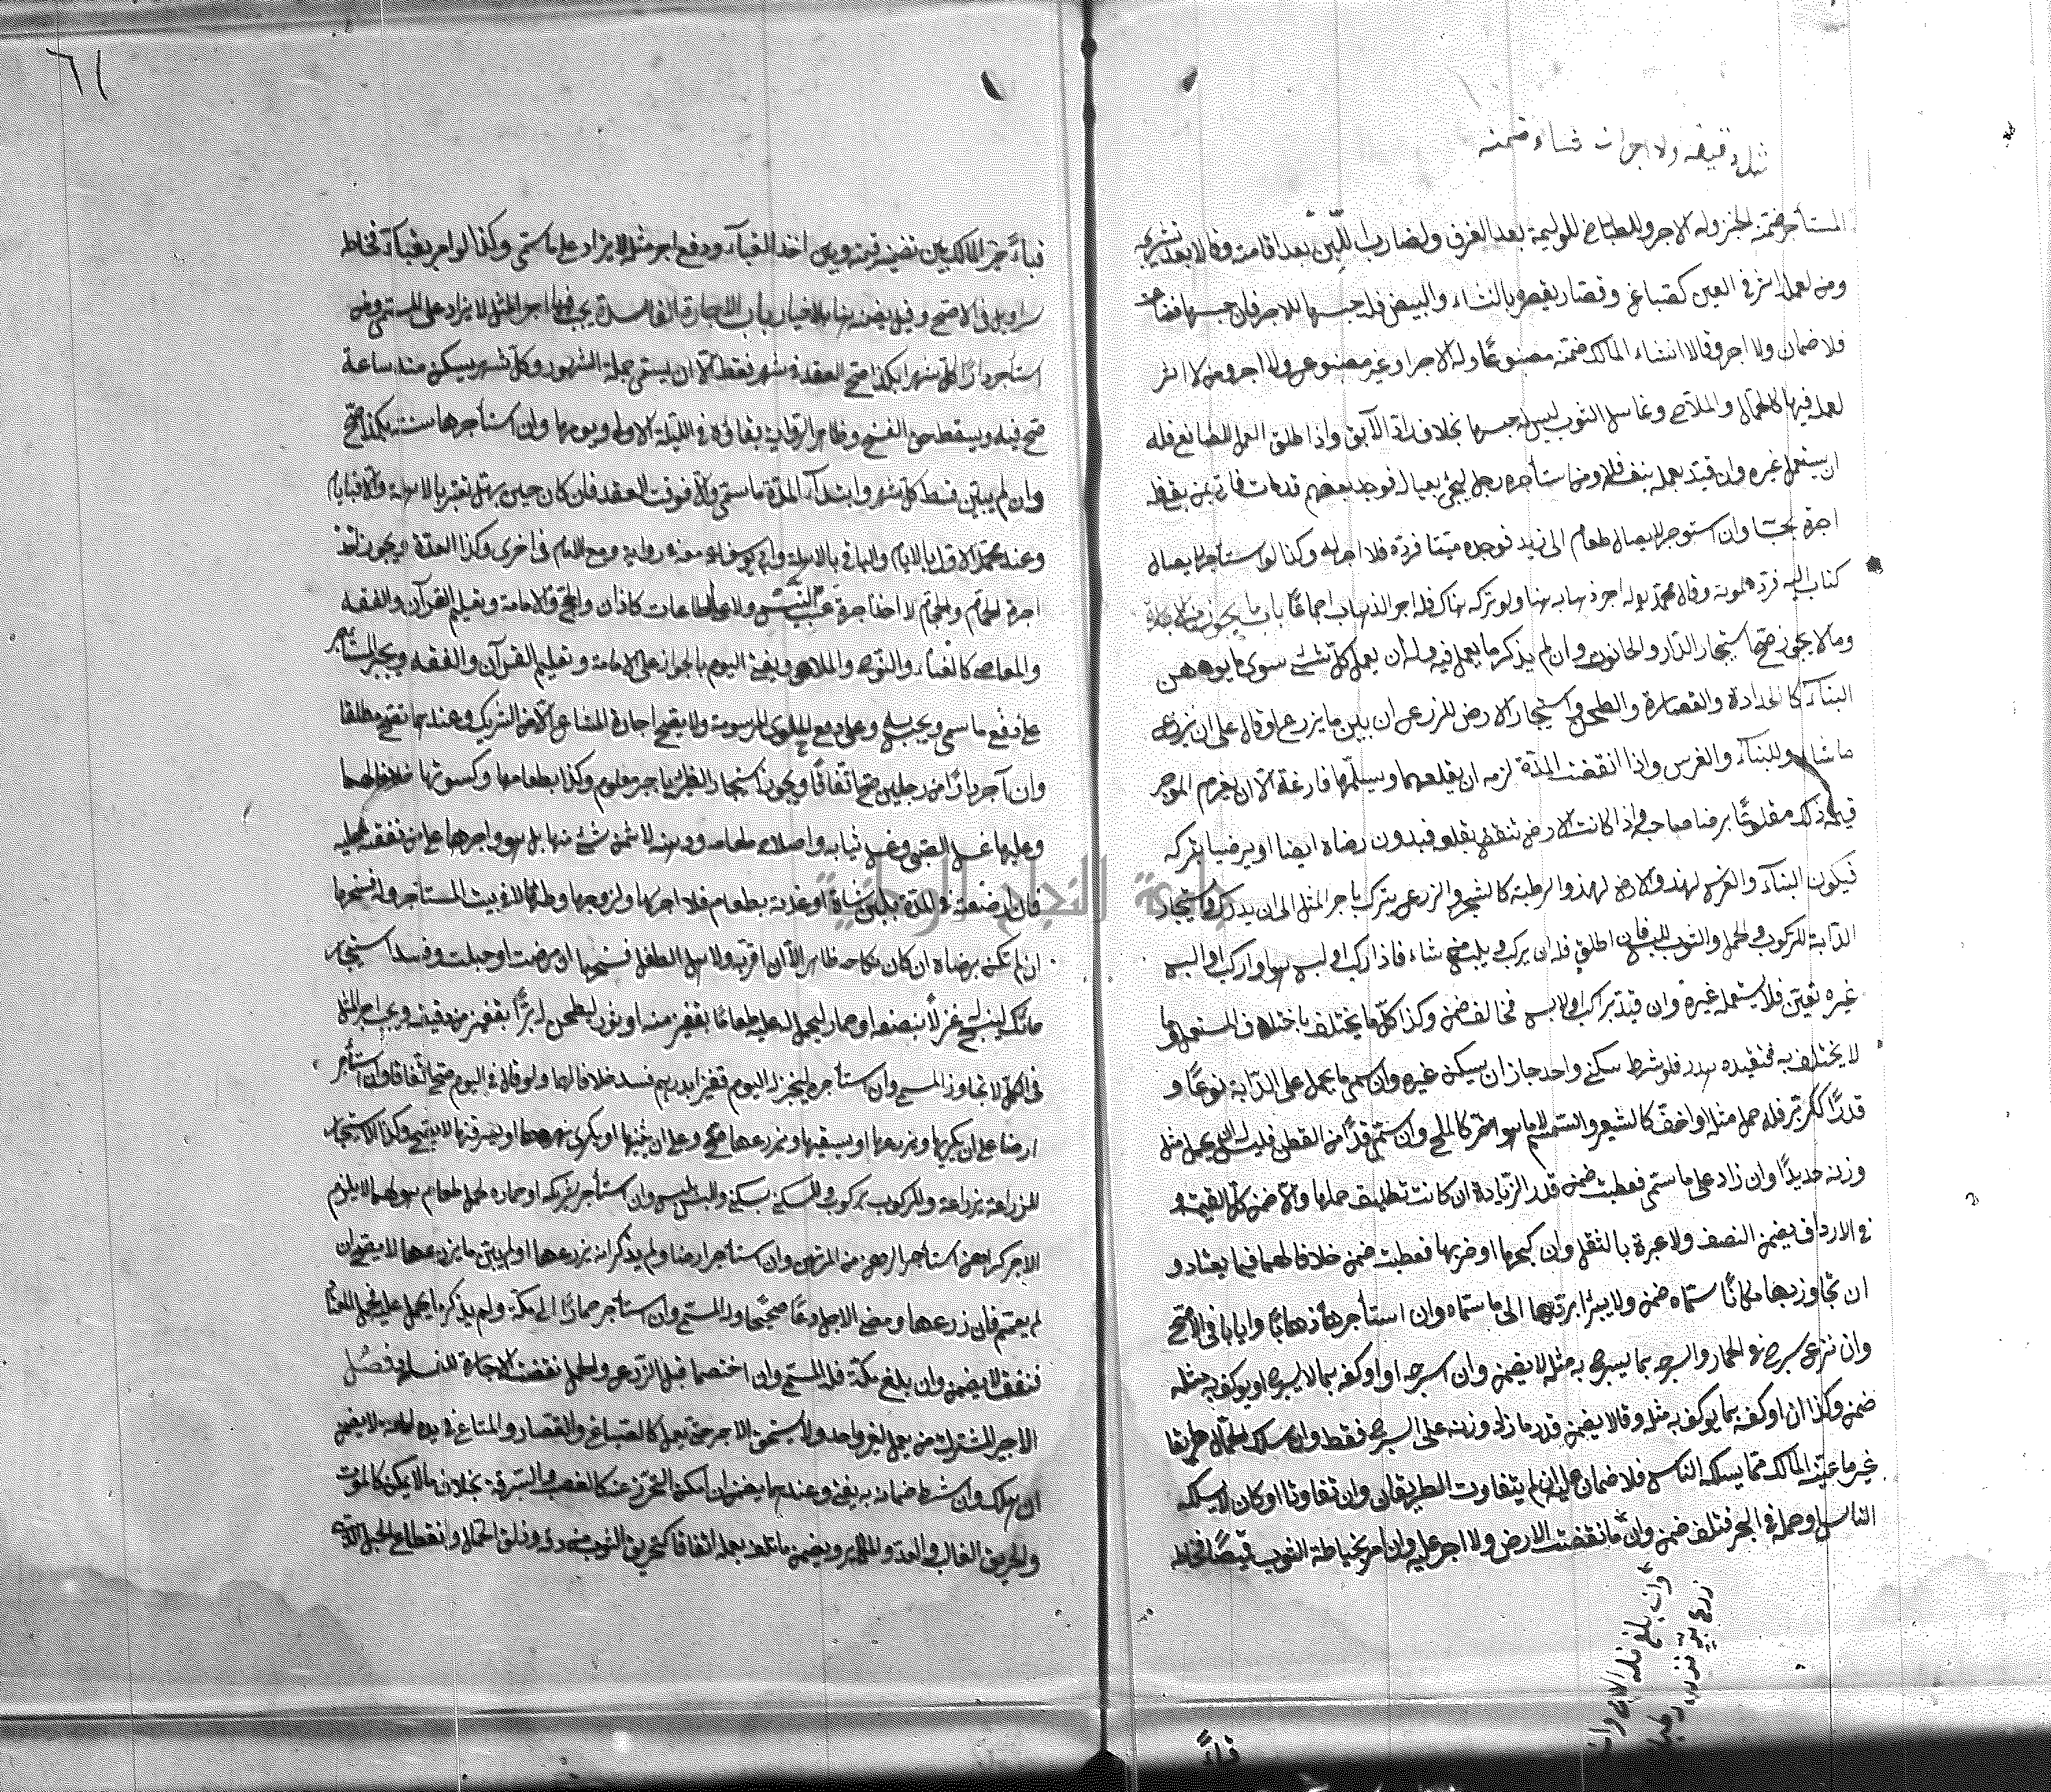 مثل دقيقه ولا اجر وان شاء ضمنه
المستأجر ضمنه الخبز وله الاجر وللطباخ للوليمة بعد الغرف ولضارب اللبن بعد اقامته وقالا بعد تشريجه
ومن لعمله اثر في العين كصباغ وقصار يقصر بالنشاء والبيض فله حبسها للاجر فان حبسها فضاعت
فلا ضمان ولا اجر وقالا ان شاء المالك ضمنه مصنوعا وله الاجر او غير مصنوع ولا اجر ومن لا اثر
لعمله فيها كالحمال والملاح وغاسل الثوب ليس له حبسها بخلاف راد الآبق واذا اطلق العمل للصانع فله
ان يستعمل غيره وان قيد بعمله بنفسه فلا ومن استأجره رجل ليجئ بعياله فوجد بعضهم قد مات فاتى بمن بقى فله
اجره بحسابه وان استؤجر لايصال طعام الى زيد فوجده ميتا فرده فلا اجر له وكذا لو استأجر لايصال
كتاب اليه فرده لموته وقال محمد له اجر ذهابه هنا ولو تركه هناك فله اجر الذهاب اجماعا باب ما يجوز من الاجارة
وما لا يجوز صح استيجار الدار والحانوت وان لم يذكر ما يعمل فيه وله ان يعمل كل شئ سوى ما يوهن
البناء كالحدادة والقصارة والطحن واستيجار الارض للزرع ان بين ما يزرع او قال على ان يزرع
ما شاء وللبناء والغرس واذا انقضت المدة لزمه ان يقلعهما ويسلمها فارغة الا ان يغرم المؤجر
قيمة ذلك مقلوعا برضا صاحبه واذا كانت الارض تنقص بقلعه فبدون رضاه ايضا او يرضيا بتركه
فيكون البناء والغرس لهذا والارض لهذا والرطبة كالشجر والزرع يترك باجر المثل الى ان يدرك واستيجار
الدابة للركوب والحمل والثوب للبس فان اطلق فله ان يركب ويلبس من شاء فاذا ركب او لبس هو او اركب او البس
غيره تعين فلا يستعمله غيره وان قيد براكب او لابس فخالف ضمن وكذا كل ما يختلف باختلاف المستعمل وما
لا يختلف به فتقييده هدر فلو شرط سكنى واحد جاز ان يسكن غيره وان سمى ما يحمل على الدابة نوعا و
قدرا ككر بر فله حمل مثله او اخف كالشعير والسمسم لا ما هو اضر كالملح وان سمى قدرا من القطن فليس له ان يحمل مثل
وزنه حديدا وان زاد على ما سمى فعطبت ضمن قدر الزيادة ان كانت تطيق حملها والا ضمن كل القيمة و
في الارداف يضمن النصف ولا عبرة بالثقل وان كبحها او ضربها فعطبت ضمن خلافا لهما فيما يعتاد و
ان تجاوز بها مكانا سماه ضمن ولا يبرأ بردها الى ما سماه وان استأجرها ذهابا وايابا في الاصح
وان نزع سرج الحمار واسرجه بما يسرج به مثله لا يضمن وان اسرجه او اوكفه بما لا يسرج او يوكف به مثله
ضمن وكذا ان اوكفه بما يوكف به مثله وقالا يضمن قدر ما زاد وزنه على السرج فقط وان سلك الحمال طريقا
غير ما عينه المالك مما يسلكه الناس فلا ضمان عليه ان لم يتفاوت الطريقان وان تفاوتا او كان لا يسلكه
الناس او حمله في البحر فتلف ضمن وان ما نقضت الارض ولا اجر عليه وان امر بخياطة الثوب قميصا فخاطه
وان بلغ فله الاجر وان
زرع بر
قباء
٦١
قباء خير المالك بين تضمينه قيمته وبين اخذ القباء ودفع اجر مثله لا يزاد على ما سمى وكذا لو امر بقباء فخاط
سراويل في الاصح وقيل يضمنه هنا بلا خيار باب الاجارة الفاسدة يجب فيها اجر المثل لا يزاد على المسمى ومن
استأجر دارا كل شهر بكذا صح العقد في شهر فقط الا ان يسمى جملة الشهور وكل شهر سكن منه ساعة
صح فيه ويسقط حق الفسخ وظاهر الرواية بقاؤه في الليلة الاولى ويومها وان استأجرها سنة بكذا صح
وان لم يبين قسط كل شهر وابتداء المدة ما سمى والا فوقت العقد فان كان حين يهل تعتبر بالاهلة والا فبالايام
وعند محمد الاول بالايام والباقي بالاهلة وابو يوسف معه في رواية ومع الامام في اخرى وكذا العدة ويجوز اخذ
اجرة الحمام والحجام لا اخذ اجرة عسب التيس ولا على الطاعات كالاذان والحج والامامة وتعليم القرآن والفقه
والمعاصي كالغناء والنوح والملاهي ويفتى اليوم بالجواز على الامامة وتعليم القرآن والفقه ويجبر المستأجر
على دفع ما سمى ويحبس به وعلى دفع الحلوى المرسومة ولا يصح اجارة المشاع الا من الشريك وعندهما تصح مطلقا
وان آجر دارا من رجلين صح اتفاقا ويجوز استيجار الظئر باجر معلوم وكذا بطعامها وكسوتها خلافا لهما
وعليها غسل الصبي وغسل ثيابه واصلاح طعامه ودهنه لا ثمن شئ منها بل هو واجرها على من نفقته عليه
فان ارضعته في المدة بلبن شاة او غذته بطعام فلا اجر لها ولزوجها وطئها لا في بيت المستأجر وله فسخها
ان لم تكن برضاه ان كان نكاحه ظاهرا لا ان اقرت به ولاهل الطفل فسخها ان مرضت او حبلت وفسد استيجار
حائك لينسج له غزلا بنصفه او حمار ليحمل عليه طعاما بقفيز منه او ثور ليطحن له برا بقفيز من دقيقه ويجب اجر المثل
في الكل لا يتجاوز المسمى وان استأجره ليخبز له اليوم قفيزا بدرهم فسد خلافا لهما ولو قال في اليوم صح اتفاقا وان استأجر
ارضا على ان يكربها ويزرعها او يسقيها ويزرعها صح وعلى ان يثنيها او يكرى نهرها او يسرقنها لا يصح وكذا لاستيجار
للزراعة بزراعة وللركوب بركوب وللسكنى بسكنى وللبس بلبس وان استأجر شريكه او حماره لحمل طعام هو لهما لا يلزم
الاجر كراهن استأجر الرهن من المرتهن وان استأجر ارضا ولم يذكر انه يزرعها او لم يبين ما يزرعها لا يصح ان
لم يعمم فان زرعها ومضى الاجل عاد صحيحا وله المسمى وان استأجر حمارا الى مكة ولم يذكر ما يحمل عليه فحمل المعتاد
فنفق لا يضمن وان بلغ مكة فله المسمى وان اختصما قبل الزرع والحمل نقضت الاجارة للفساد فصل
الاجير المشترك من يعمل لغير واحد ولا يستحق الاجر حتى يعمل كالصباغ والقصار والمتاع في يده امانة لا يضمن
ان هلك وان شرط ضمانه به يفتى وعندهما يضمن ان امكن التحرز عنه كالغصب والسرقة بخلاف ما لا يمكن كالموت
والحريق الغالب والعدو المكابر ويضمن ما تلف بعمله اتفاقا كتخريق الثوب من دقه وزلق الحمال وانقطاع الحبل الذي